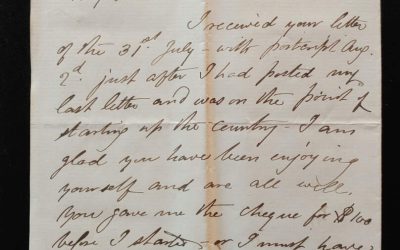 I received your letter
of the 31st July - with postcript Aug.
2d. just after I had posted my
last letter and was on the point of
starting up the country - I am
glad you have been enjoying
yourself and are all well.
You gave me the cheque for $100
before I started - or I must have